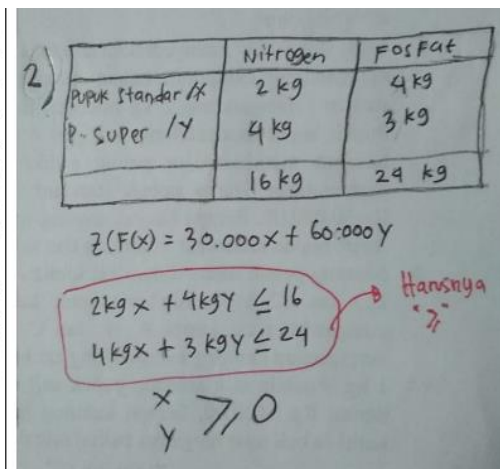 2)
Nitrogen FosFat
PUPUK Standar /X 2 kg 4 kg
P-SUPER /Y 4 kg 3 kg
16 kg 24 kg
Z(F(x) = 30.000x + 60.000Y
2kg x + 4kgY ≤ 16
4kgx + 3kgY ≤ 24
Harusnya
"≥"
x
y ≥ 0